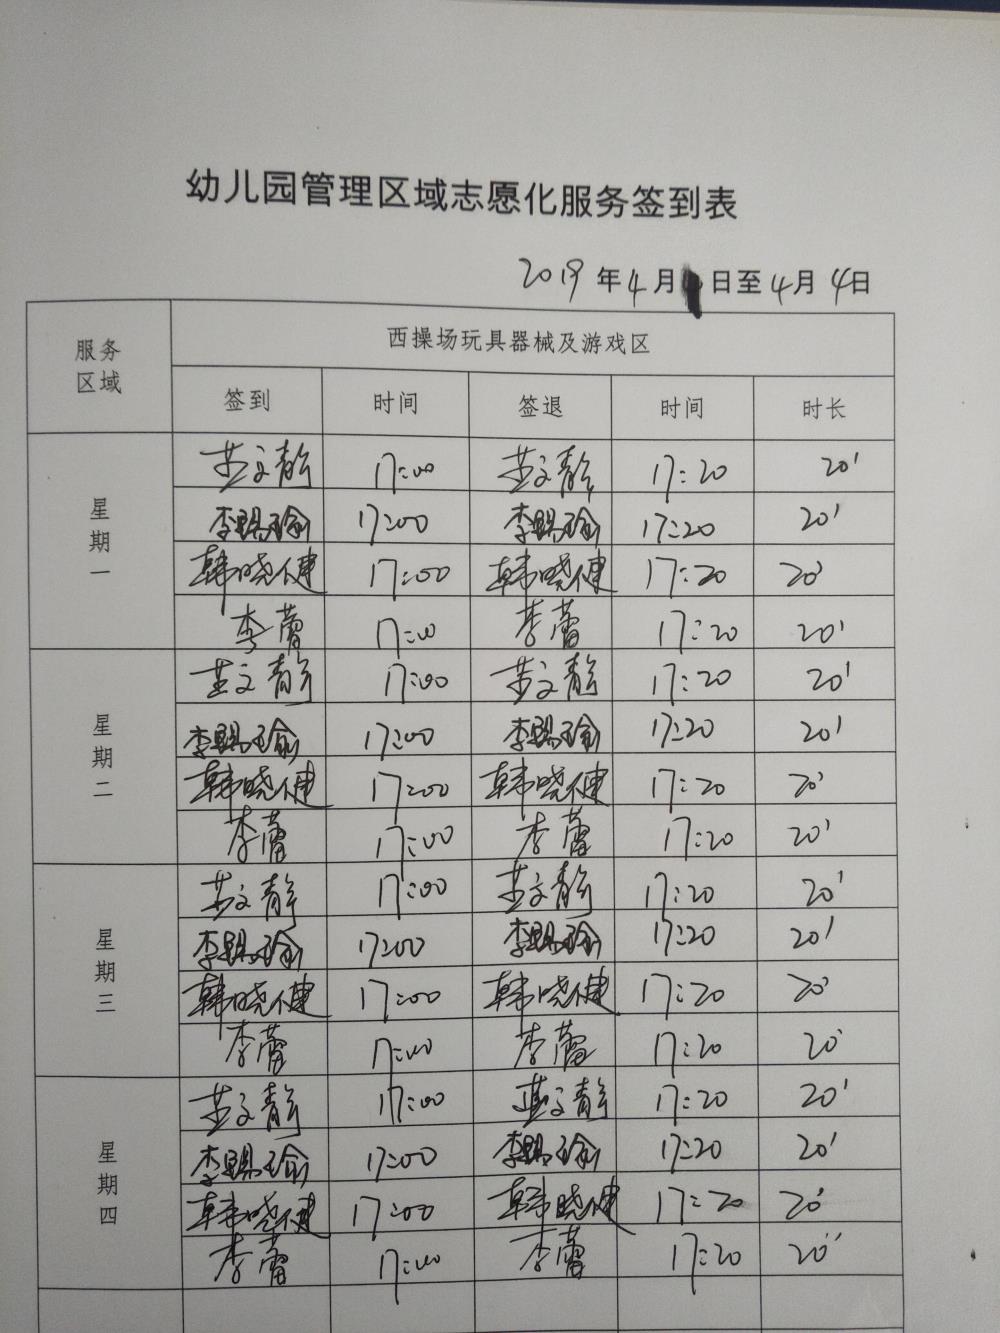 幼儿园管理区域志愿化服务签到表
2019年4月 日至4月4日
服务区域 西操场玩具器械及游戏区
签到 时间 签退 时间 时长
星期一
文静 17:00 文静 17:20 20'
李赐瑜 17:00 李赐瑜 17:20 20'
韩晓健 17:00 韩晓健 17:20 20'
李蕾 17:00 李蕾 17:20 20'
星期二
文静 17:00 文静 17:20 20'
李赐瑜 17:00 李赐瑜 17:20 20'
韩晓健 17:00 韩晓健 17:20 20'
李蕾 17:00 李蕾 17:20 20'
星期三
文静 17:00 文静 17:20 20'
李赐瑜 17:00 李赐瑜 17:20 20'
韩晓健 17:00 韩晓健 17:20 20'
李蕾 17:00 李蕾 17:20 20'
星期四
文静 17:00 文静 17:20 20'
李赐瑜 17:00 李赐瑜 17:20 20'
韩晓健 17:00 韩晓健 17:20 20'
李蕾 17:00 李蕾 17:20 20'